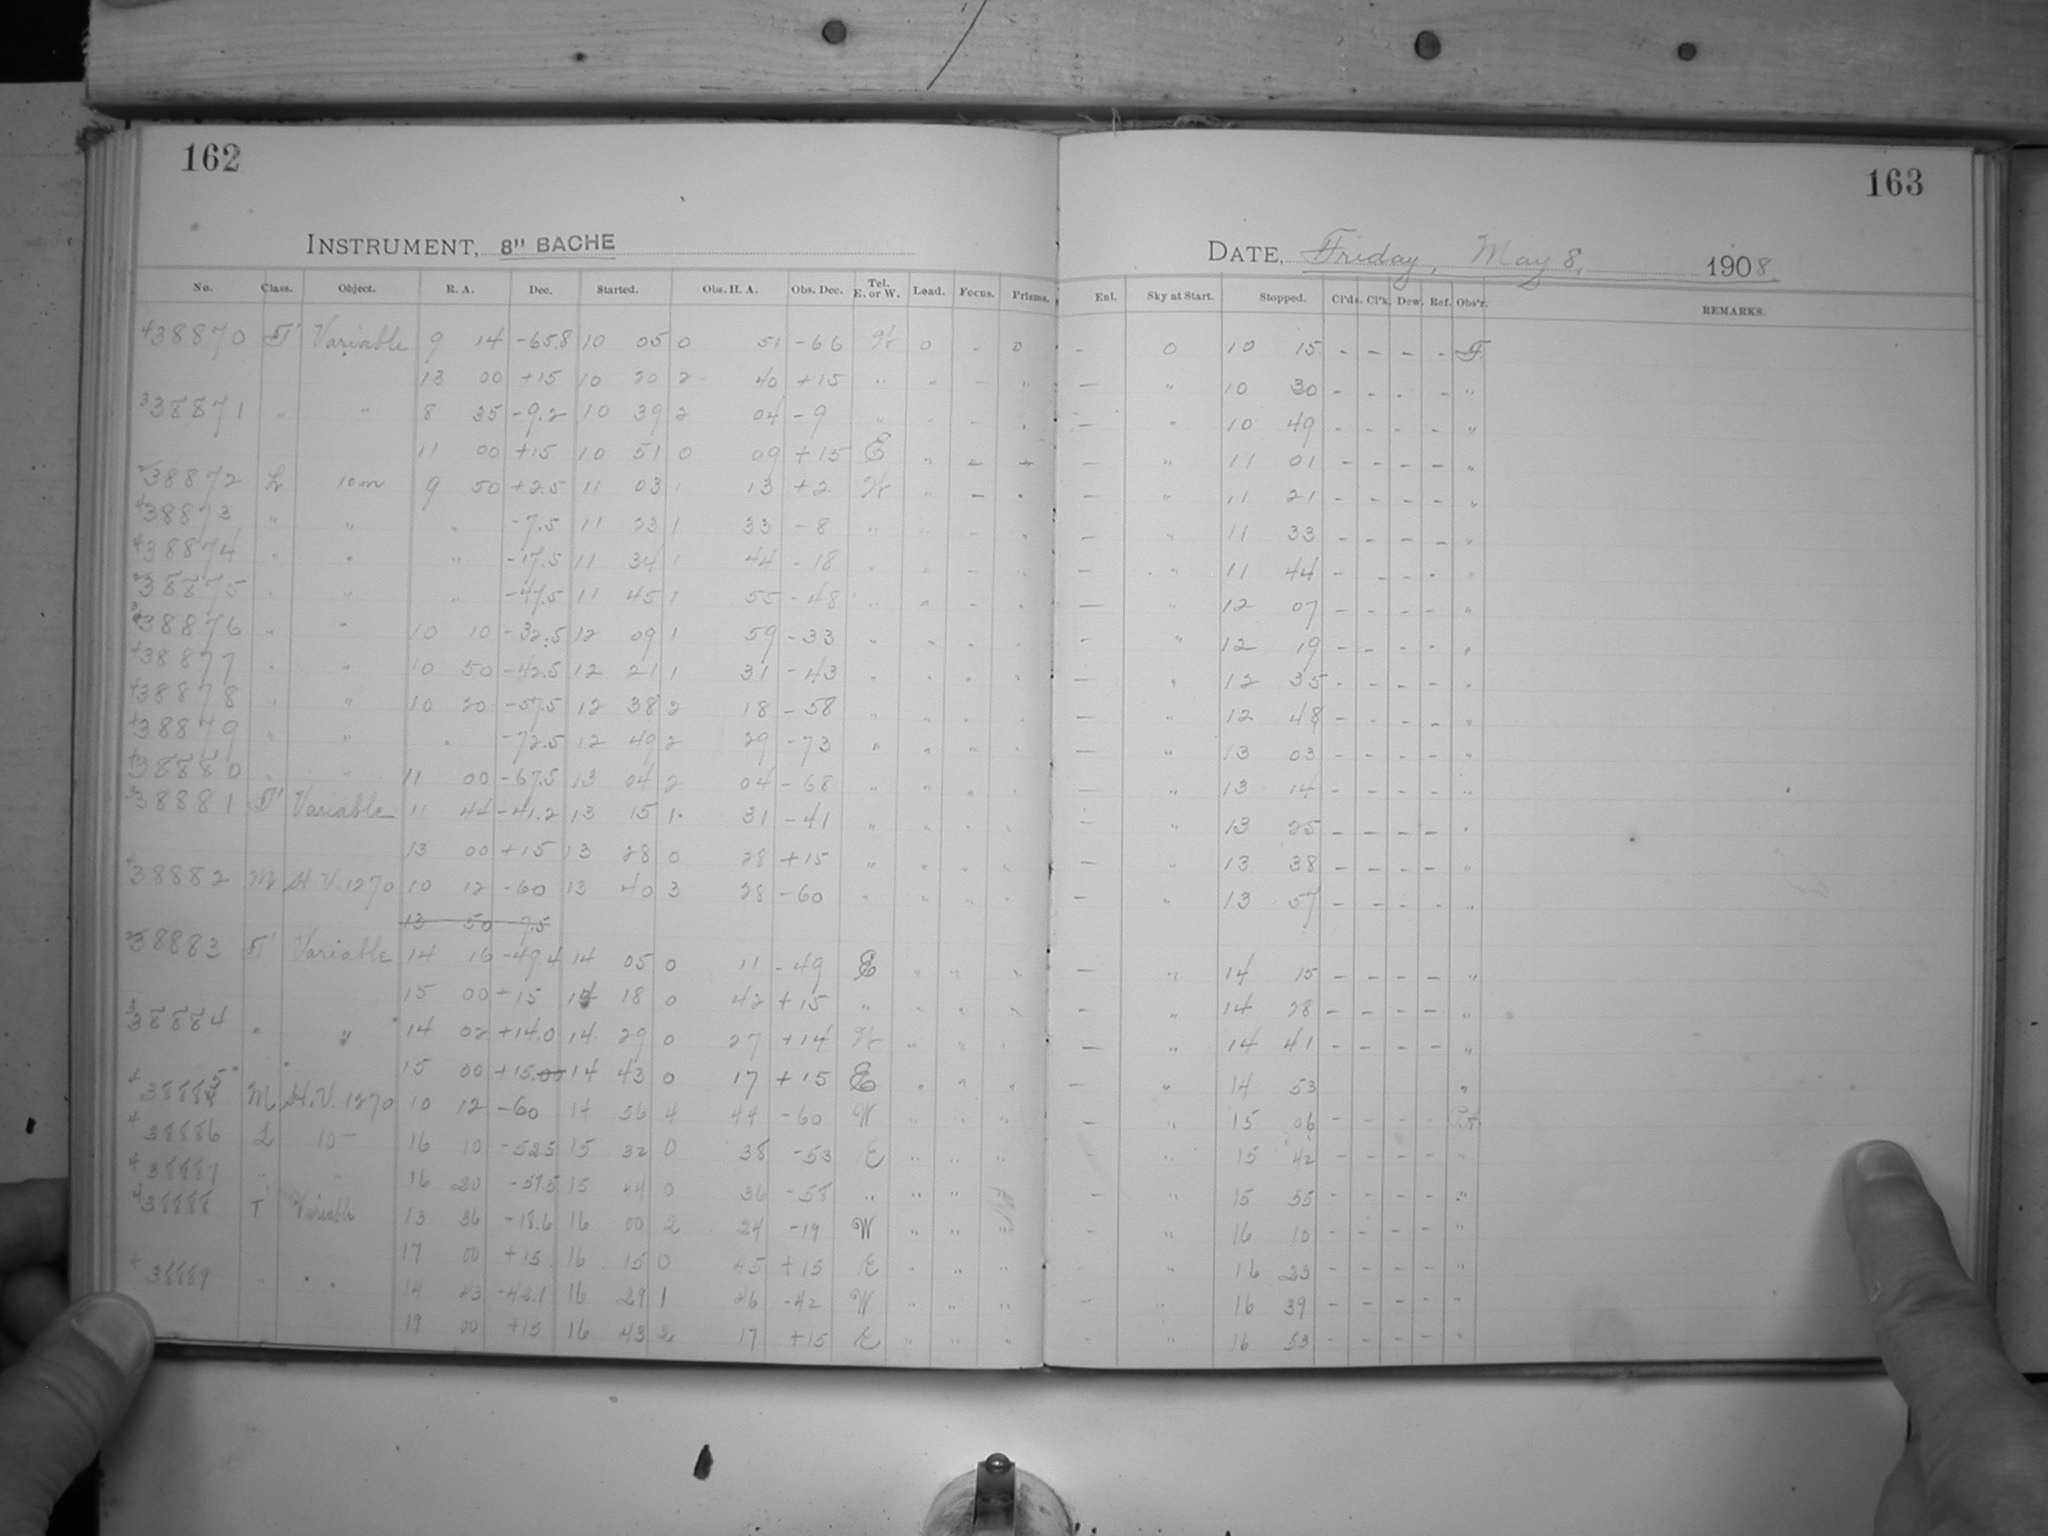 162
163
INSTRUMENT, 8" BACHE
DATE, Friday, May 8, 1908.
No. Class. Object. R. A. Dec. Started. Obs. H. A. Obs. Dec. Tel. E. or W. Load. Focus. Prisms. Enl. Sky at Start. Stopped. Cl'ds. Cl'k. Dew. Ref. Obs'r. REMARKS.
438870 T Variable 9 14 -65.8 10 05 0 51 -66 W 0 - 0 - 0 10 15 - - - - F.
13 00 +15 10 20 2 40 +15 " " - " - " 10 30 - - - - "
338871 " " 8 35 -9.2 10 39 2 04 -9 " - - " - " 10 49 - - - - "
11 00 +15 10 51 0 09 +15 E " - - " 11 01 - - - - "
38872 L 10m 9 50 +2.5 11 03 1 13 +2 W " - " - " 11 21 - - - - "
438873 " " " -7.5 11 23 1 33 -8 " " - " - " 11 33 - - - - "
438874 " " " -17.5 11 34 1 44 -18 " " - " - " 11 44 - - - - "
38875 " " " -47.5 11 45 1 55 -48 " " - " - " 12 07 - - - - "
38876 " " 10 10 -32.5 12 09 1 59 -33 " " " " - " 12 19 - - - - "
438877 " " 10 50 -42.5 12 21 1 31 -43 " " " " - " 12 35 - - - - "
438878 " " 10 20 -57.5 12 38 2 18 -58 " " " " - " 12 48 - - - - "
438879 " " " -72.5 12 49 2 29 -73 " " " " - " 13 03 - - - - "
438880 " " 11 00 -67.5 13 04 2 04 -68 " " " " - " 13 14 - - - - "
338881 T Variable 11 44 -41.2 13 15 1 31 -41 " " " " - " 13 25 - - - - "
13 00 +15 13 28 0 28 +15 " " " " - " 13 38 - - - - "
438882 M H.V. 1270 10 12 -60 13 40 3 28 -60 " " " " - " 13 57 - - - - "
13 50 -7.5
38883 T Variable 14 16 -49.4 14 05 0 11 -49 E " " " - " 14 15 - - - - "
15 00 +15 14 18 0 42 +15 " " " " - " 14 28 - - - - "
338884 " " 14 02 +14.0 14 29 0 27 +14 W " " " - " 14 41 - - - - "
15 00 +15.00 14 43 0 17 +15 E " " " - " 14 53 "
438885 M H.V. 1270 10 12 -60 14 56 4 44 -60 W " " " - " 15 06 - - - -
438886 L 10- 16 10 -52.5 15 32 0 38 -53 E " " " " 15 42 - - - - "
438887 " " 16 20 -57.5 15 44 0 36 -58 " " " - " 15 55 - - - - "
438888 T Variable 13 36 -18.6 16 00 2 24 -19 W " " " " 16 10 - - - - "
17 00 +15 16 15 0 45 +15 E " " " - " 16 23 - - - - "
438889 " " 14 43 -42.1 16 29 1 46 -42 W " " " - " 16 39 - - - - "
19 00 +15 16 43 2 17 +15 E " " " - " 16 53 - - - - "